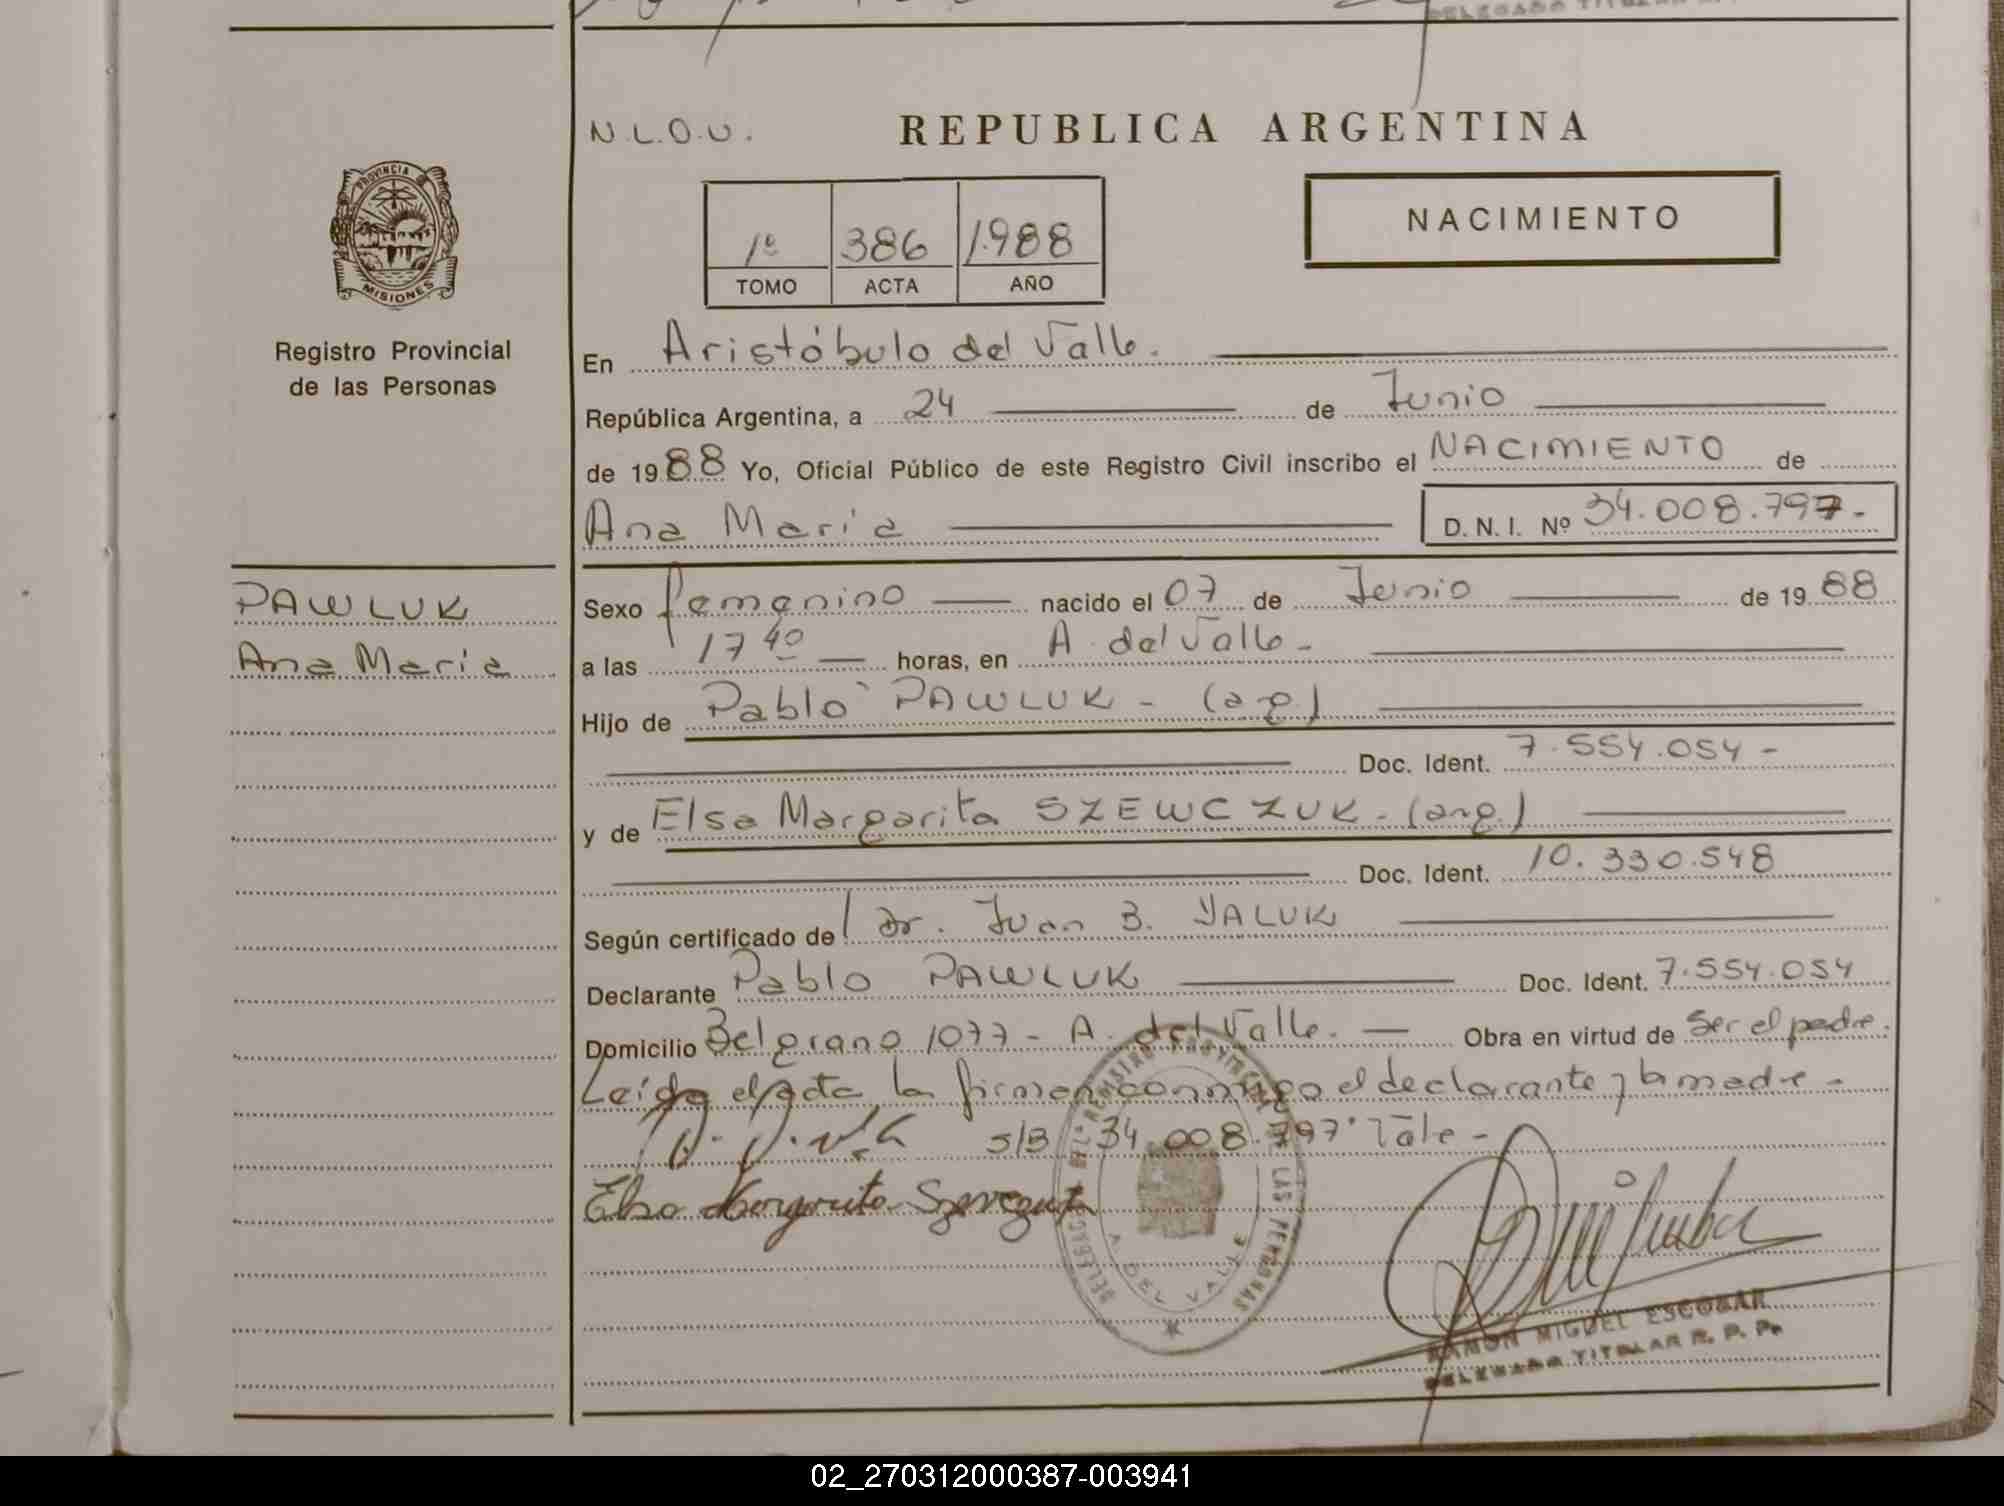 DELEGADO TITULAR
N.L.O.U.
REPUBLICA ARGENTINA
PROVINCIA DE
MISIONES
1º 386 1.988
TOMO ACTA AÑO
NACIMIENTO
Registro Provincial
de las Personas
En Aristóbulo del Valle.
República Argentina, a 24 de Junio
de 1988 Yo, Oficial Público de este Registro Civil inscribo el NACIMIENTO de
Ana María D. N. I. Nº 34.008.797-
PAWLUK
Ana María
Sexo femenino nacido el 07 de Junio de 1988
a las 17 40 horas, en A. del Valle-
Hijo de Pablo PAWLUK - (arg)
Doc. Ident. 7.554.054-
y de Elsa Margarita SZEWCZUK - (arg.)
Doc. Ident. 10.330.548
Según certificado de Dr. Juan B. YALUK
Declarante Pablo PAWLUK Doc. Ident. 7.554.054
Domicilio Belgrano 1077 - A. del Valle. Obra en virtud de ser el padre.
Leída el acta, la firman conmigo el declarante y la madre-
S/B 34.008.797. Vale-
Elsa Margarita Szewczuk
DELEGACION DEL REGISTRO PROVINCIAL DE LAS PERSONAS
A. DEL VALLE
RAMON MIGUEL ESCOBAR
DELEGADO TITULAR R. P. P.
02_270312000387-003941